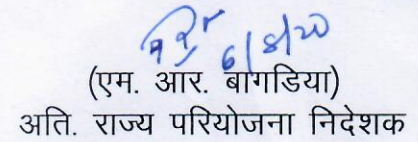 6/8/20
(एम. आर. बागडिया)
अति. राज्य परियोजना निदेशक